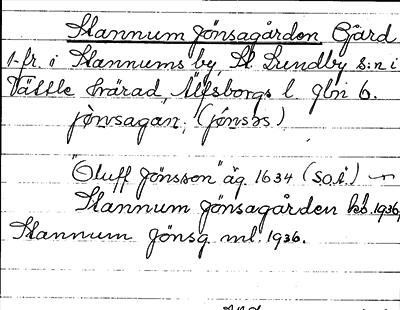 Stannum Jönsagården Gård
1 fr. i Stannums by, St. Lundby s:n i
Vättle härad, Älfsborgs l. gbn 6.
jònsagan, (jónsəs)
"Oluff Jönsson" äg. 1634 (SOÄ)
Stannum Jönsagården kb. 1936,
Stannum Jönsg. ml. 1936.